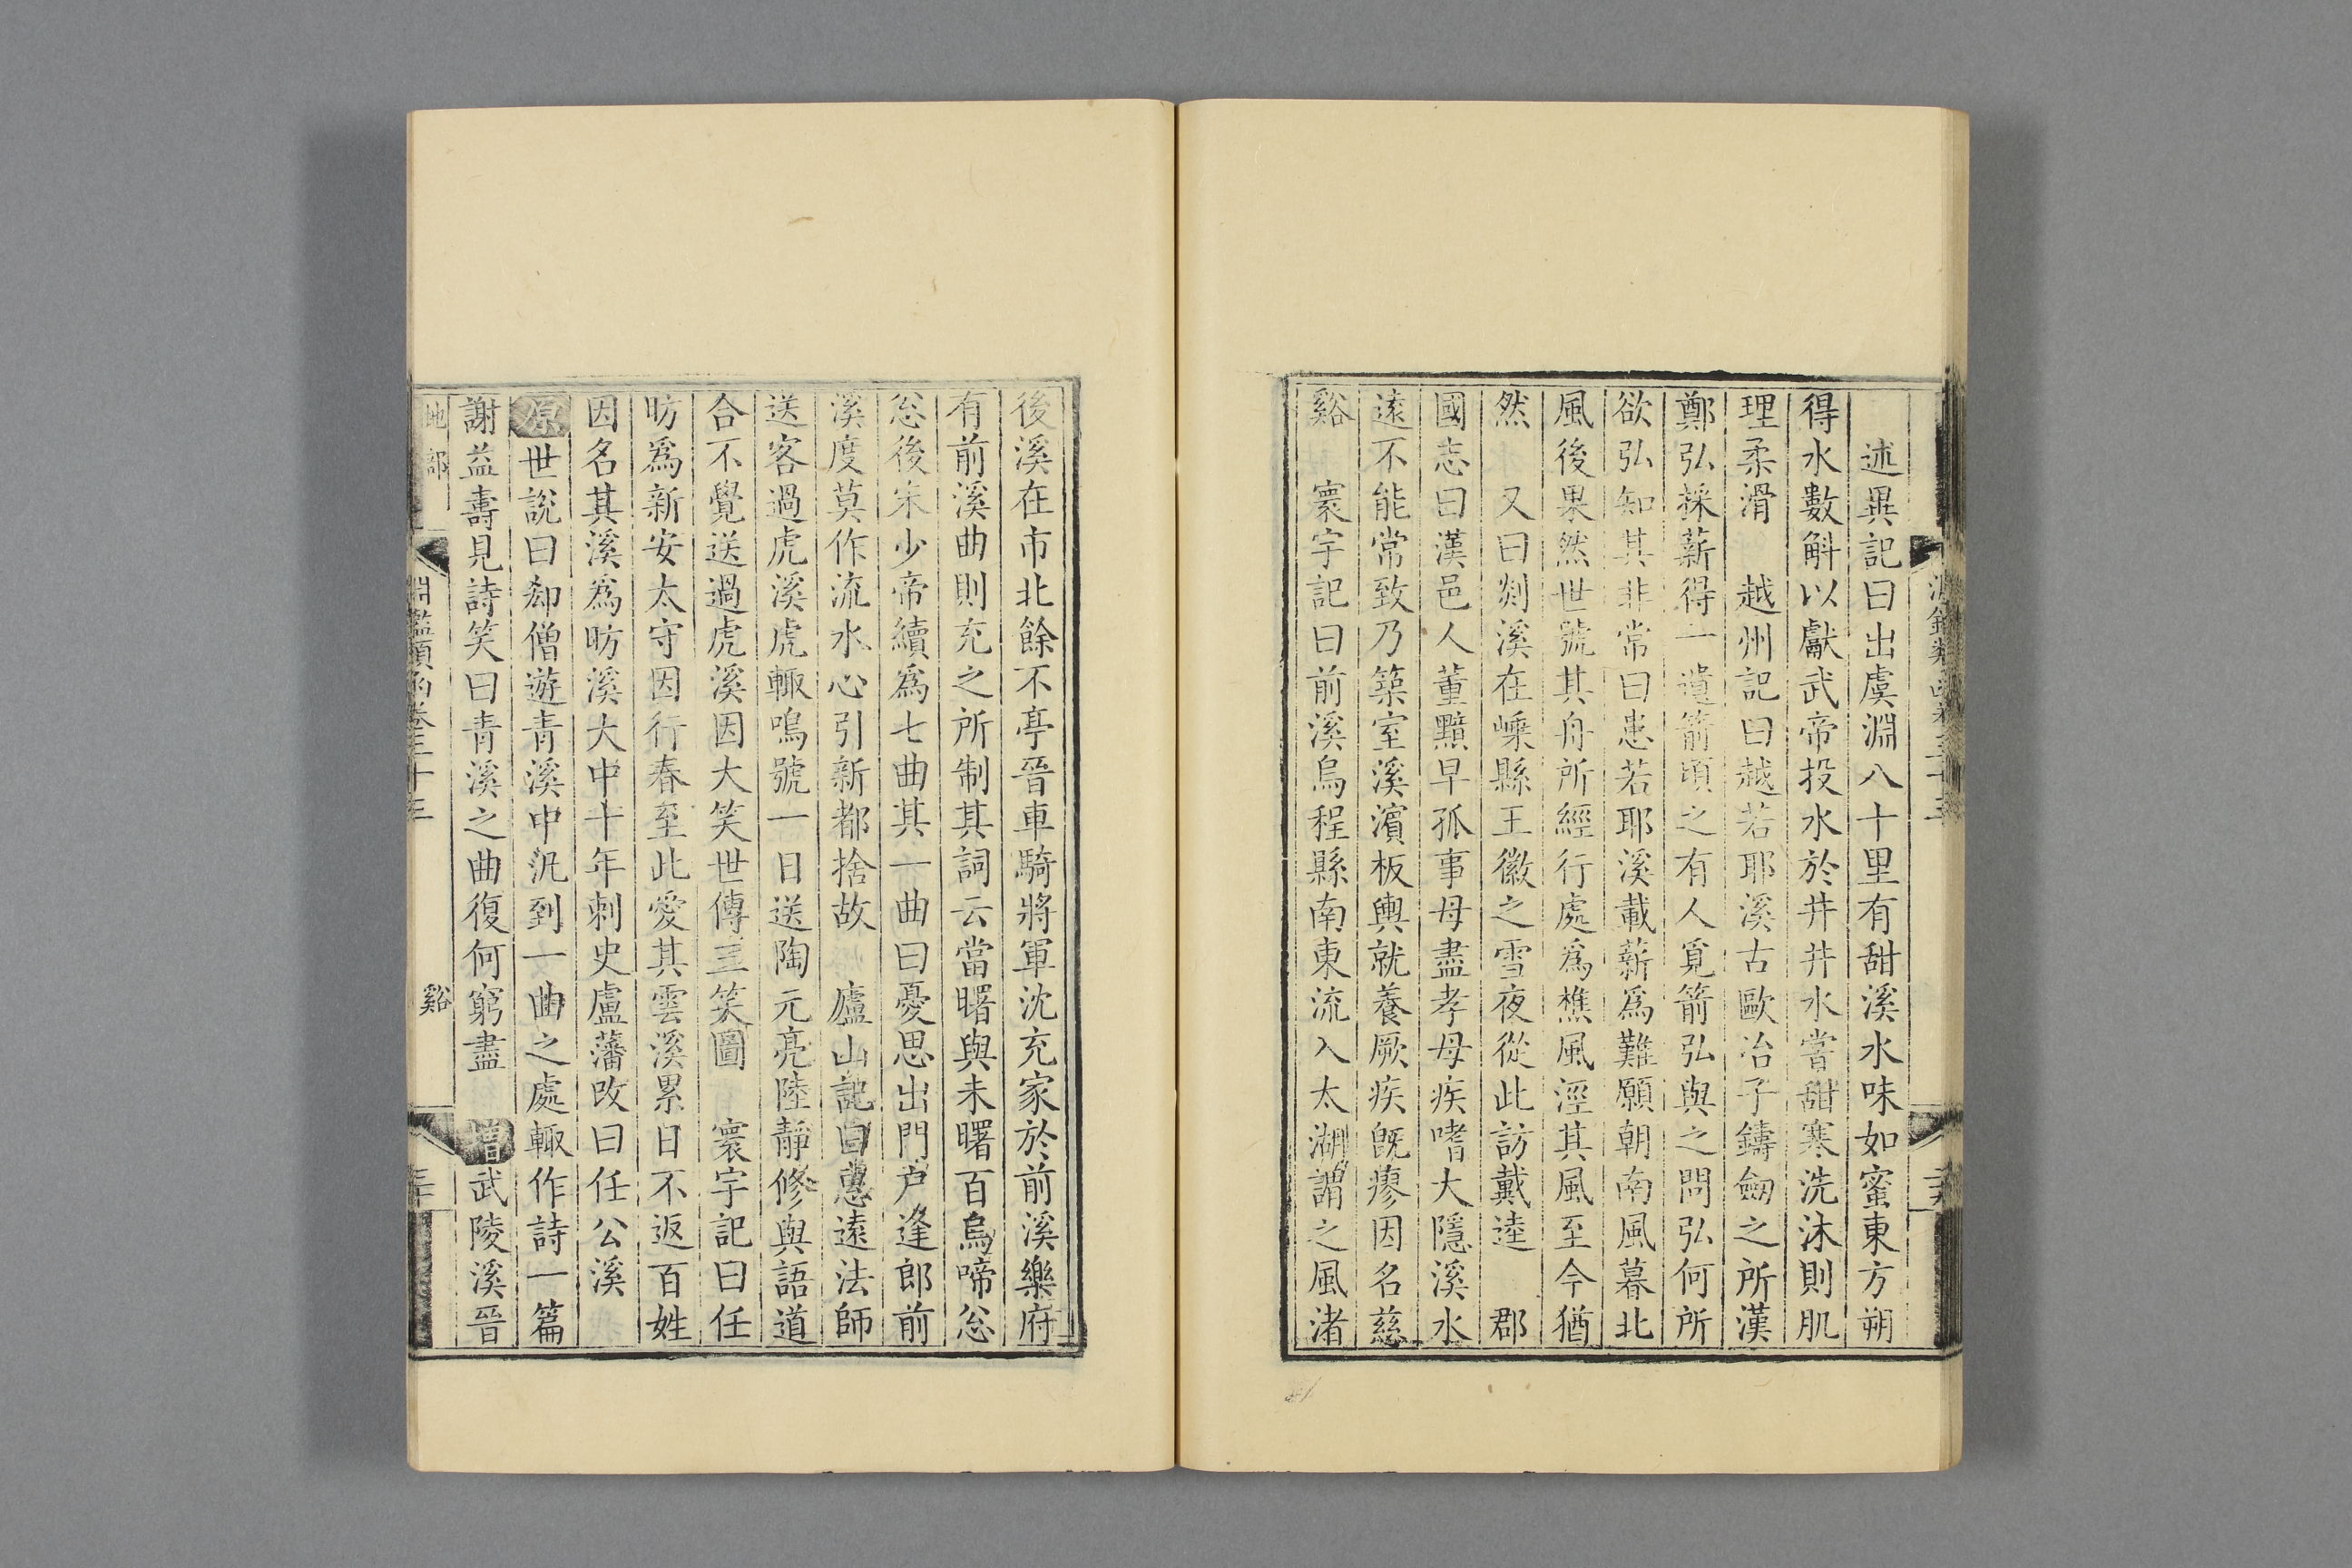 述異記曰出虞淵八十里有甜溪水味如蜜東方朔
得水數斛以獻武帝投水於井井水嘗甜寒洗沐則肌
理柔滑　越州記曰越若耶溪古歐冶子鑄劒之所漢
鄭弘採薪得一遺箭頃之有人覓箭弘與之問弘何所
欲弘知其非常曰患若耶溪載薪爲難願朝南風暮北
風後果然世號其舟所經行處爲樵風涇其風至今猶
然　又曰剡溪在嵊縣王徽之雪夜從此訪戴逵　郡
國志曰漢邑人董黯早孤事母盡孝母疾嗜大隱溪水
遠不能常致乃築室溪濱板輿就養厥疾旣瘳因名慈
谿　寰宇記曰前溪烏程縣南東流入太湖謂之風渚
後溪在市北餘不亭晉車騎將軍沈充家於前溪樂府
有前溪曲則充之所制其詞云當曙與未曙百鳥啼忩
忩後宋少帝續爲七曲其一曲曰憂思出門戶逢郎前
溪度莫作流水心引新都捨故　廬山記曰惠遠法師
送客過虎溪虎輙鳴號一日送陶元亮陸靜修與語道
合不覺送過虎溪因大笑世傳三笑圖　寰宇記曰任
昉爲新安太守因行春至此愛其雲溪累日不返百姓
因名其溪爲昉溪大中十年刺史盧藩改曰任公溪
原世說曰郄僧遊青溪中汎到一曲之處輙作詩一篇
謝益壽見詩笑曰青溪之曲復何窮盡　增武陵溪晉
地部　淵鑑類函卷三十三　谿